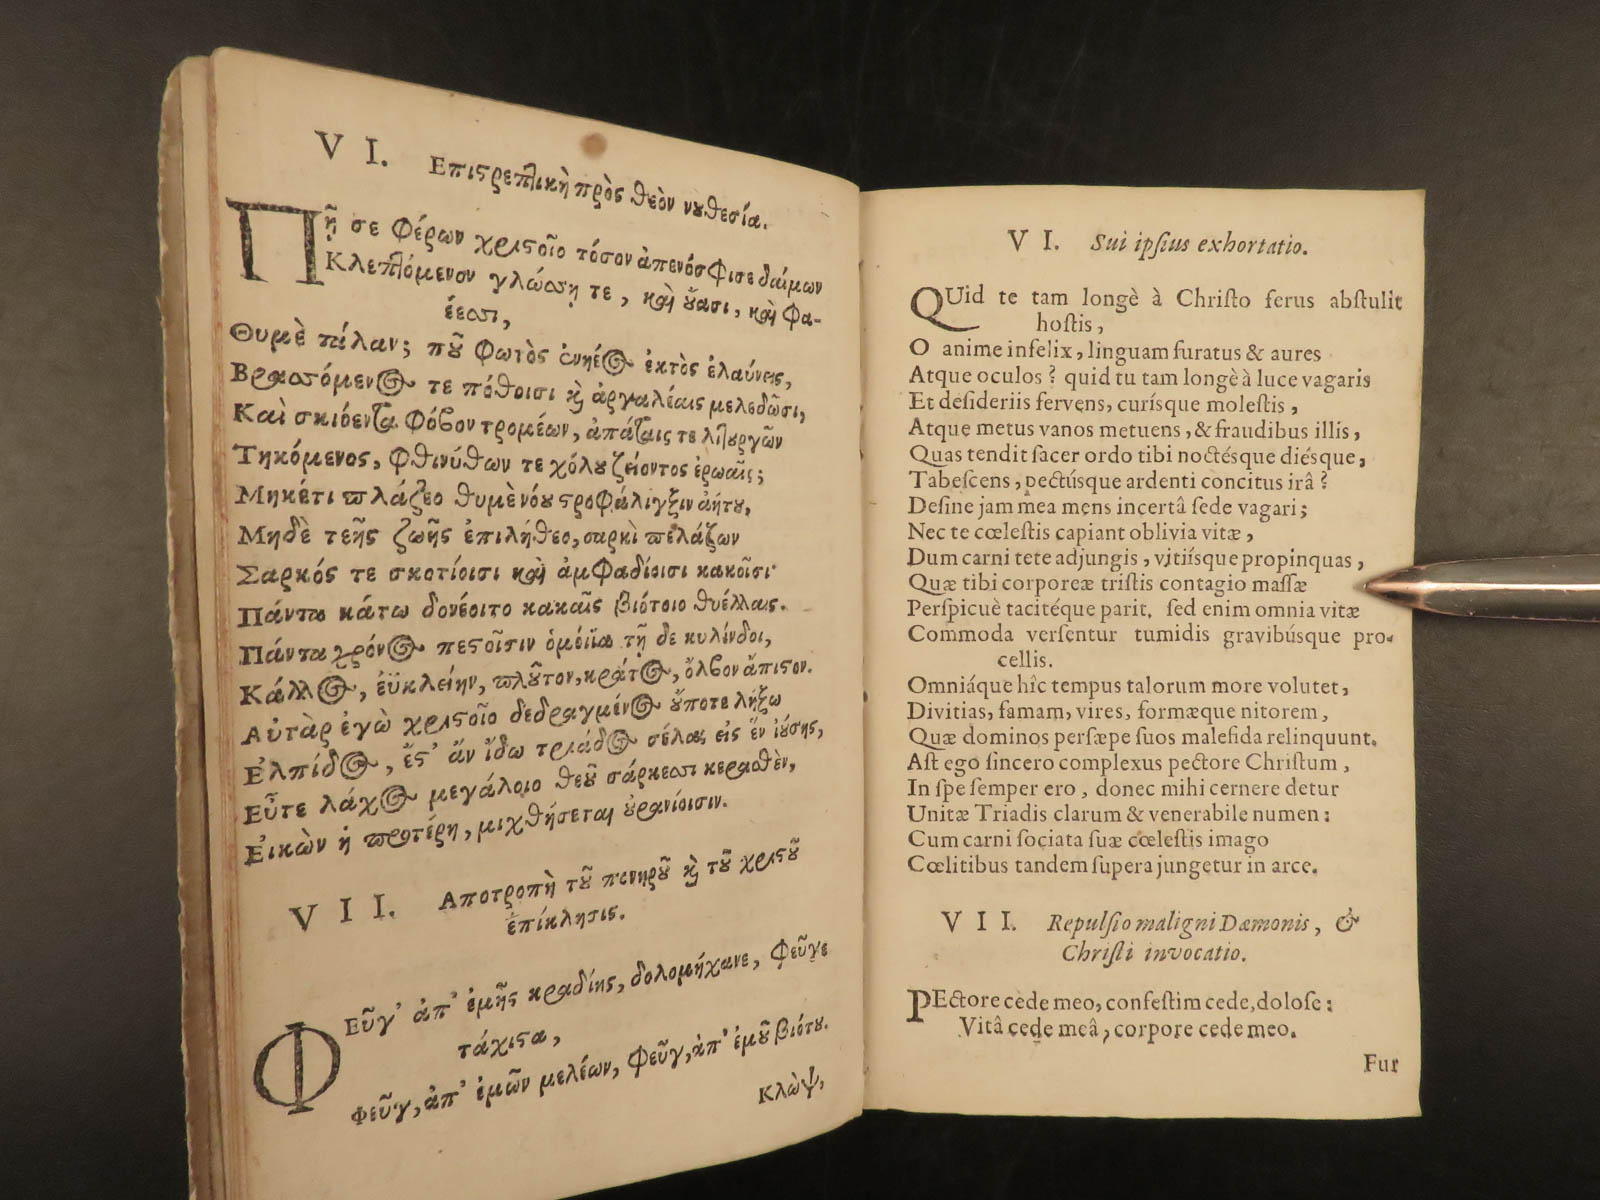 VI. Επιστρεπτικὴ πρὸς θεὸν νουθεσία.
Πῆ σε φέρων χριστοῖο τόσον ἀπενόσφισε δαίμων
Κλεπτόμενον γλώσσῃ τε, καὶ οὔασι, καὶ φα-
έεσσι,
Θυμὲ πάλαν; ποῦ φωτὸς ἐνηέος ἐκτὸς ἐλαύνεις,
Βρασσόμενος τε πόθοισι καὶ ἀργαλέαις μελεδῶσι,
Καὶ σκιόεντα φόβον τρομέων, ἀπάταις τε λιτουργῶν
Τηκόμενος, φθινύθων τε χόλου ζείοντος ἐρωαῖς;
Μηκέτι πλάζεο θυμὲ νόου στροφάλιγξιν ἀήτου,
Μηδὲ τεῆς ζωῆς ἐπιλήθεο, σαρκὶ πελάζων
Σαρκός τε σκοτίοισι καὶ ἀμφαδίοισι κακοῖσι·
Πάντα κάτω δονέοιτο κακαῖς βιότοιο θυέλλαις.
Πάντα χρόνος πεστοῖσιν ὁμοίϊα τῇ δε κυλίνδοι,
Κάλλος, ἐϋκλείην, πλοῦτον, κράτος, ὄλβον ἄπιστον.
Αὐτὰρ ἐγὼ χριστοῖο δεδραγμένος οὔποτε λήξω
Ἐλπίδος, ἔστ' ἂν ἴδω τριάδος σέλας εἰς ἓν ἰούσης,
Εὖτε λάχος μεγάλοιο θεοῦ σάρκεσσι κερασθὲν,
Εἰκὼν ἡ προτέρη, μιχθήσεται οὐρανίοισιν.
VII. Αποτροπὴ τοῦ πονηροῦ καὶ τοῦ χριστοῦ
ἐπίκλησις.
Φεῦγ' ἀπ' ἐμῆς κραδίης, δολομήχανε, φεῦγε
τάχιστα,
Φεῦγ, ἀπ' ἐμῶν μελέων, φεῦγ, ἀπ' ἐμοῦ βιότου.
Κλὼψ,
VI. Sui ipsius exhortatio.
QUid te tam longè à Christo ferus abstulit
hostis,
O anime infelix, linguam furatus & aures
Atque oculos? quid tu tam longè à luce vagaris
Et desideriis fervens, curísque molestis,
Atque metus vanos metuens, & fraudibus illis,
Quas tendit sacer ordo tibi noctésque diésque,
Tabescens, pectúsque ardenti concitus irâ?
Desine jam mea mens incertâ sede vagari;
Nec te cœlestis capiant oblivia vitæ,
Dum carni tete adjungis, vitiísque propinquas,
Quæ tibi corporeæ tristis contagio massæ
Perspicuè tacitéque parit. sed enim omnia vitæ
Commoda versentur tumidis gravibúsque pro-
cellis.
Omniáque hîc tempus talorum more volutet,
Divitias, famam, vires, formæque nitorem,
Quæ dominos persæpe suos malefida relinquunt.
Ast ego sincero complexus pectore Christum,
In spe semper ero, donec mihi cernere detur
Unitæ Triadis clarum & venerabile numen:
Cum carni sociata suæ cœlestis imago
Cœlitibus tandem supera jungetur in arce.
VII. Repulsio maligni Dæmonis, &
Christi invocatio.
PEctore cede meo, confestim cede, dolose:
Vitâ cede meâ, corpore cede meo.
Fur